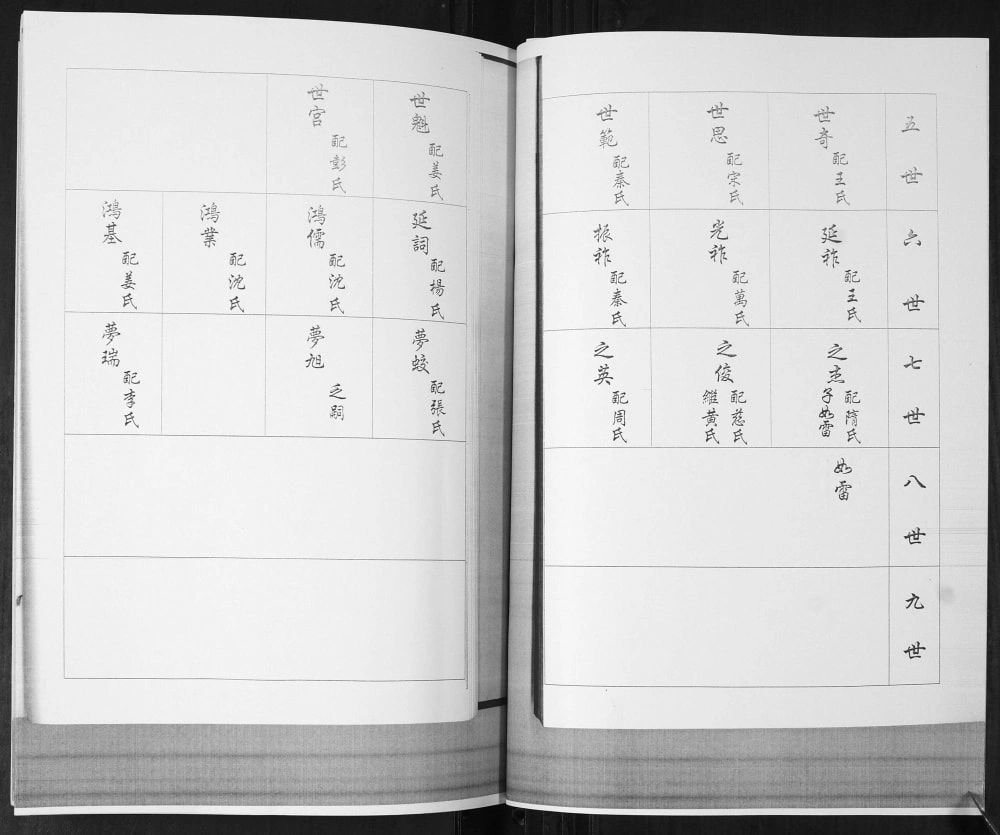 五世
世奇 配王氏
世思 配宋氏
世範 配秦氏
六世
延祚 配王氏
光祚 配萬氏
振祚 配秦氏
七世
之杰 配隋氏
子如雷
之俊 配慈氏
繼黃氏
之英 配周氏
八世
如雷
九世
世魁 配姜氏
世宮 配彭氏
延詞 配楊氏
鴻儒 配沈氏
鴻業 配沈氏
鴻基 配姜氏
夢蛟 配張氏
夢旭 乏嗣
夢瑞 配李氏